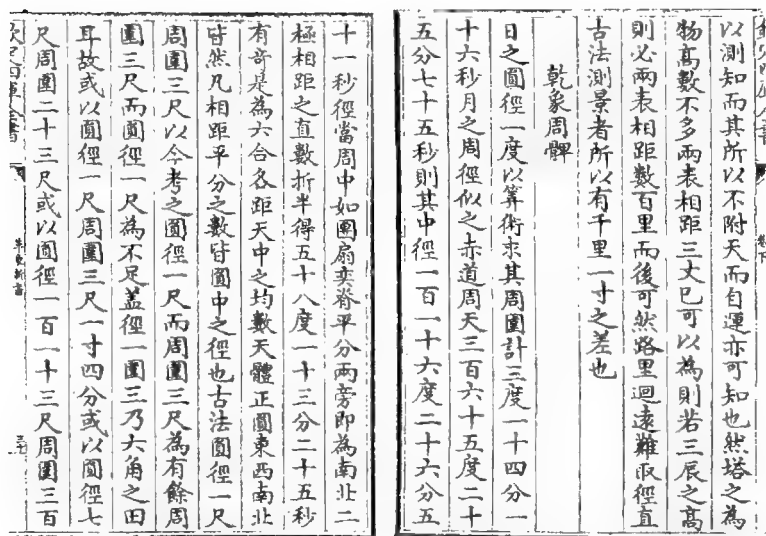 卷下
以測知而其所以不附天而自運亦可知也然塔之為
物高數不多兩表相距三丈已可以為則若三辰之高
則必兩表相距數百里而後可然路里迴遠難取徑直
古法測景者所以有千里一寸之差也
乾象周髀
日之圓徑一度以筭術求其周圍計三度一十四分一
十六秒月之周徑似之赤道周天三百六十五度二十
五分七十五秒則其中徑一百一十六度二十六分五
十一秒徑當周中如團扇奕脊平分兩旁即為南北二
極相距之直數折半得五十八度一十三分二十五秒
有奇是為六合各距天中之均數天體正圓東西南北
皆然凡相距平分之數皆圓中之徑也古法圓徑一尺
周圍三尺以今考之圓徑一尺而周圍三尺為有餘周
圍三尺而圓徑一尺為不足蓋徑一圍三乃六角之田
耳故或以圓徑一尺周圍三尺一寸四分或以圓徑七
尺周圍二十三尺或以圓徑一百一十三尺周圍三百
欽定四庫全書
革象新書